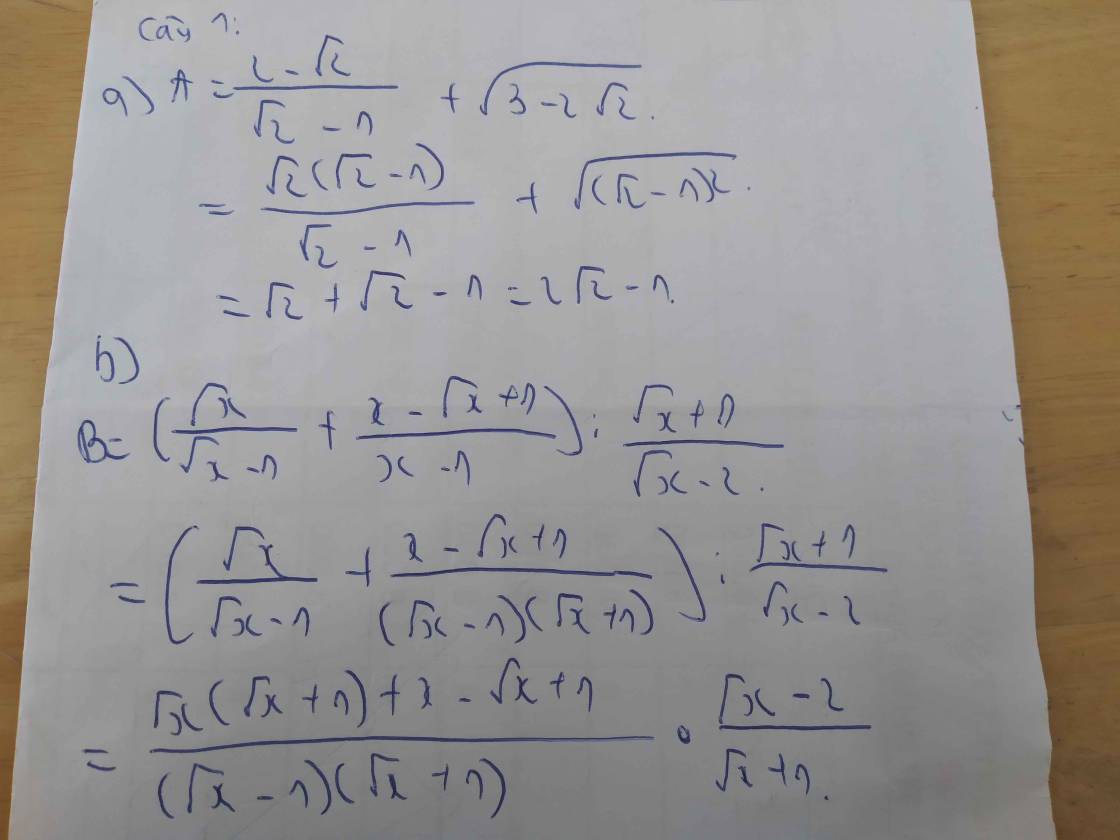 Câu 1:
a) A = \frac{2 - √2}{√2 - 1} + \sqrt{3 - 2√2}.
= \frac{√2(√2 - 1)}{√2 - 1} + \sqrt{(√2 - 1)^2}.
= √2 + √2 - 1 = 2√2 - 1.
b)
B = (\frac{√x}{√x - 1} + \frac{x - √x + 1}{x - 1}) : \frac{√x + 1}{√x - 2}.
= (\frac{√x}{√x - 1} + \frac{x - √x + 1}{(√x - 1)(√x + 1)}) : \frac{√x + 1}{√x - 2}
= \frac{√x(√x + 1) + x - √x + 1}{(√x - 1)(√x + 1)} · \frac{√x - 2}{√x + 1}.